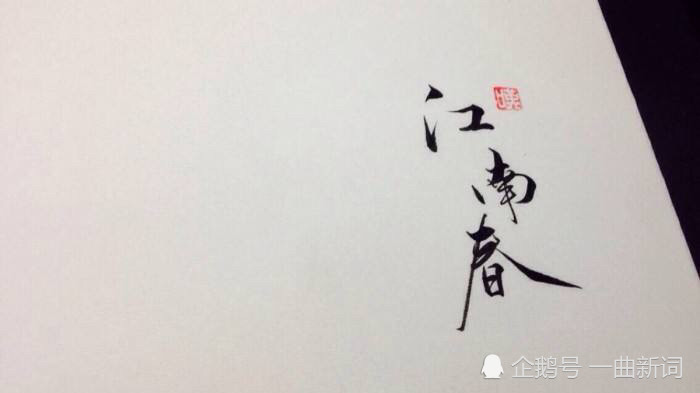 江南春
企鹅号 一曲新词